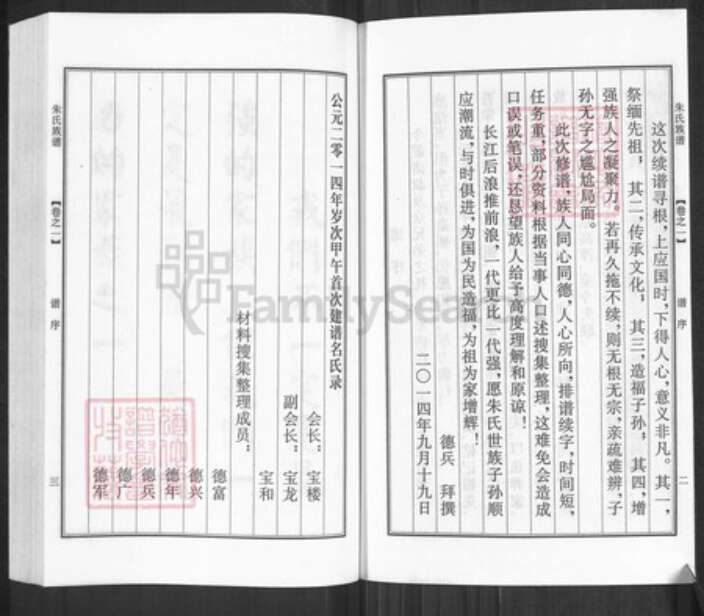 朱氏族谱
【卷之一】
谱序
二
这次续谱寻根，上应国时，下得人心，意义非凡。其一，
祭缅先祖，其二，传承文化，其三，造福子孙，其四，增
强族人之凝聚力。若再久拖不续，则无根无宗，亲疏难辨，子
孙无字之尴尬局面。
此次修谱，族人同心同德，人心所向，排谱续字，时间短，
任务重，部分资料根据当事人口述搜集整理，这难免会造成
口误或笔误，还恳望族人给予高度理解和原谅！
长江后浪推前浪，一代更比一代强，愿朱氏世族子孙顺
应潮流，与时俱进，为国为民造福，为祖为家增辉！
德兵 拜撰
二〇一四年九月十九日
公元二零一四年岁次甲午首次建谱名氏录
会长：宝楼
副会长：宝龙
宝和
材料搜集整理成员：
德富
德兴
德年
德兵
德广
德军
朱氏族谱
【卷之一】
谱序
三
FamilySearch